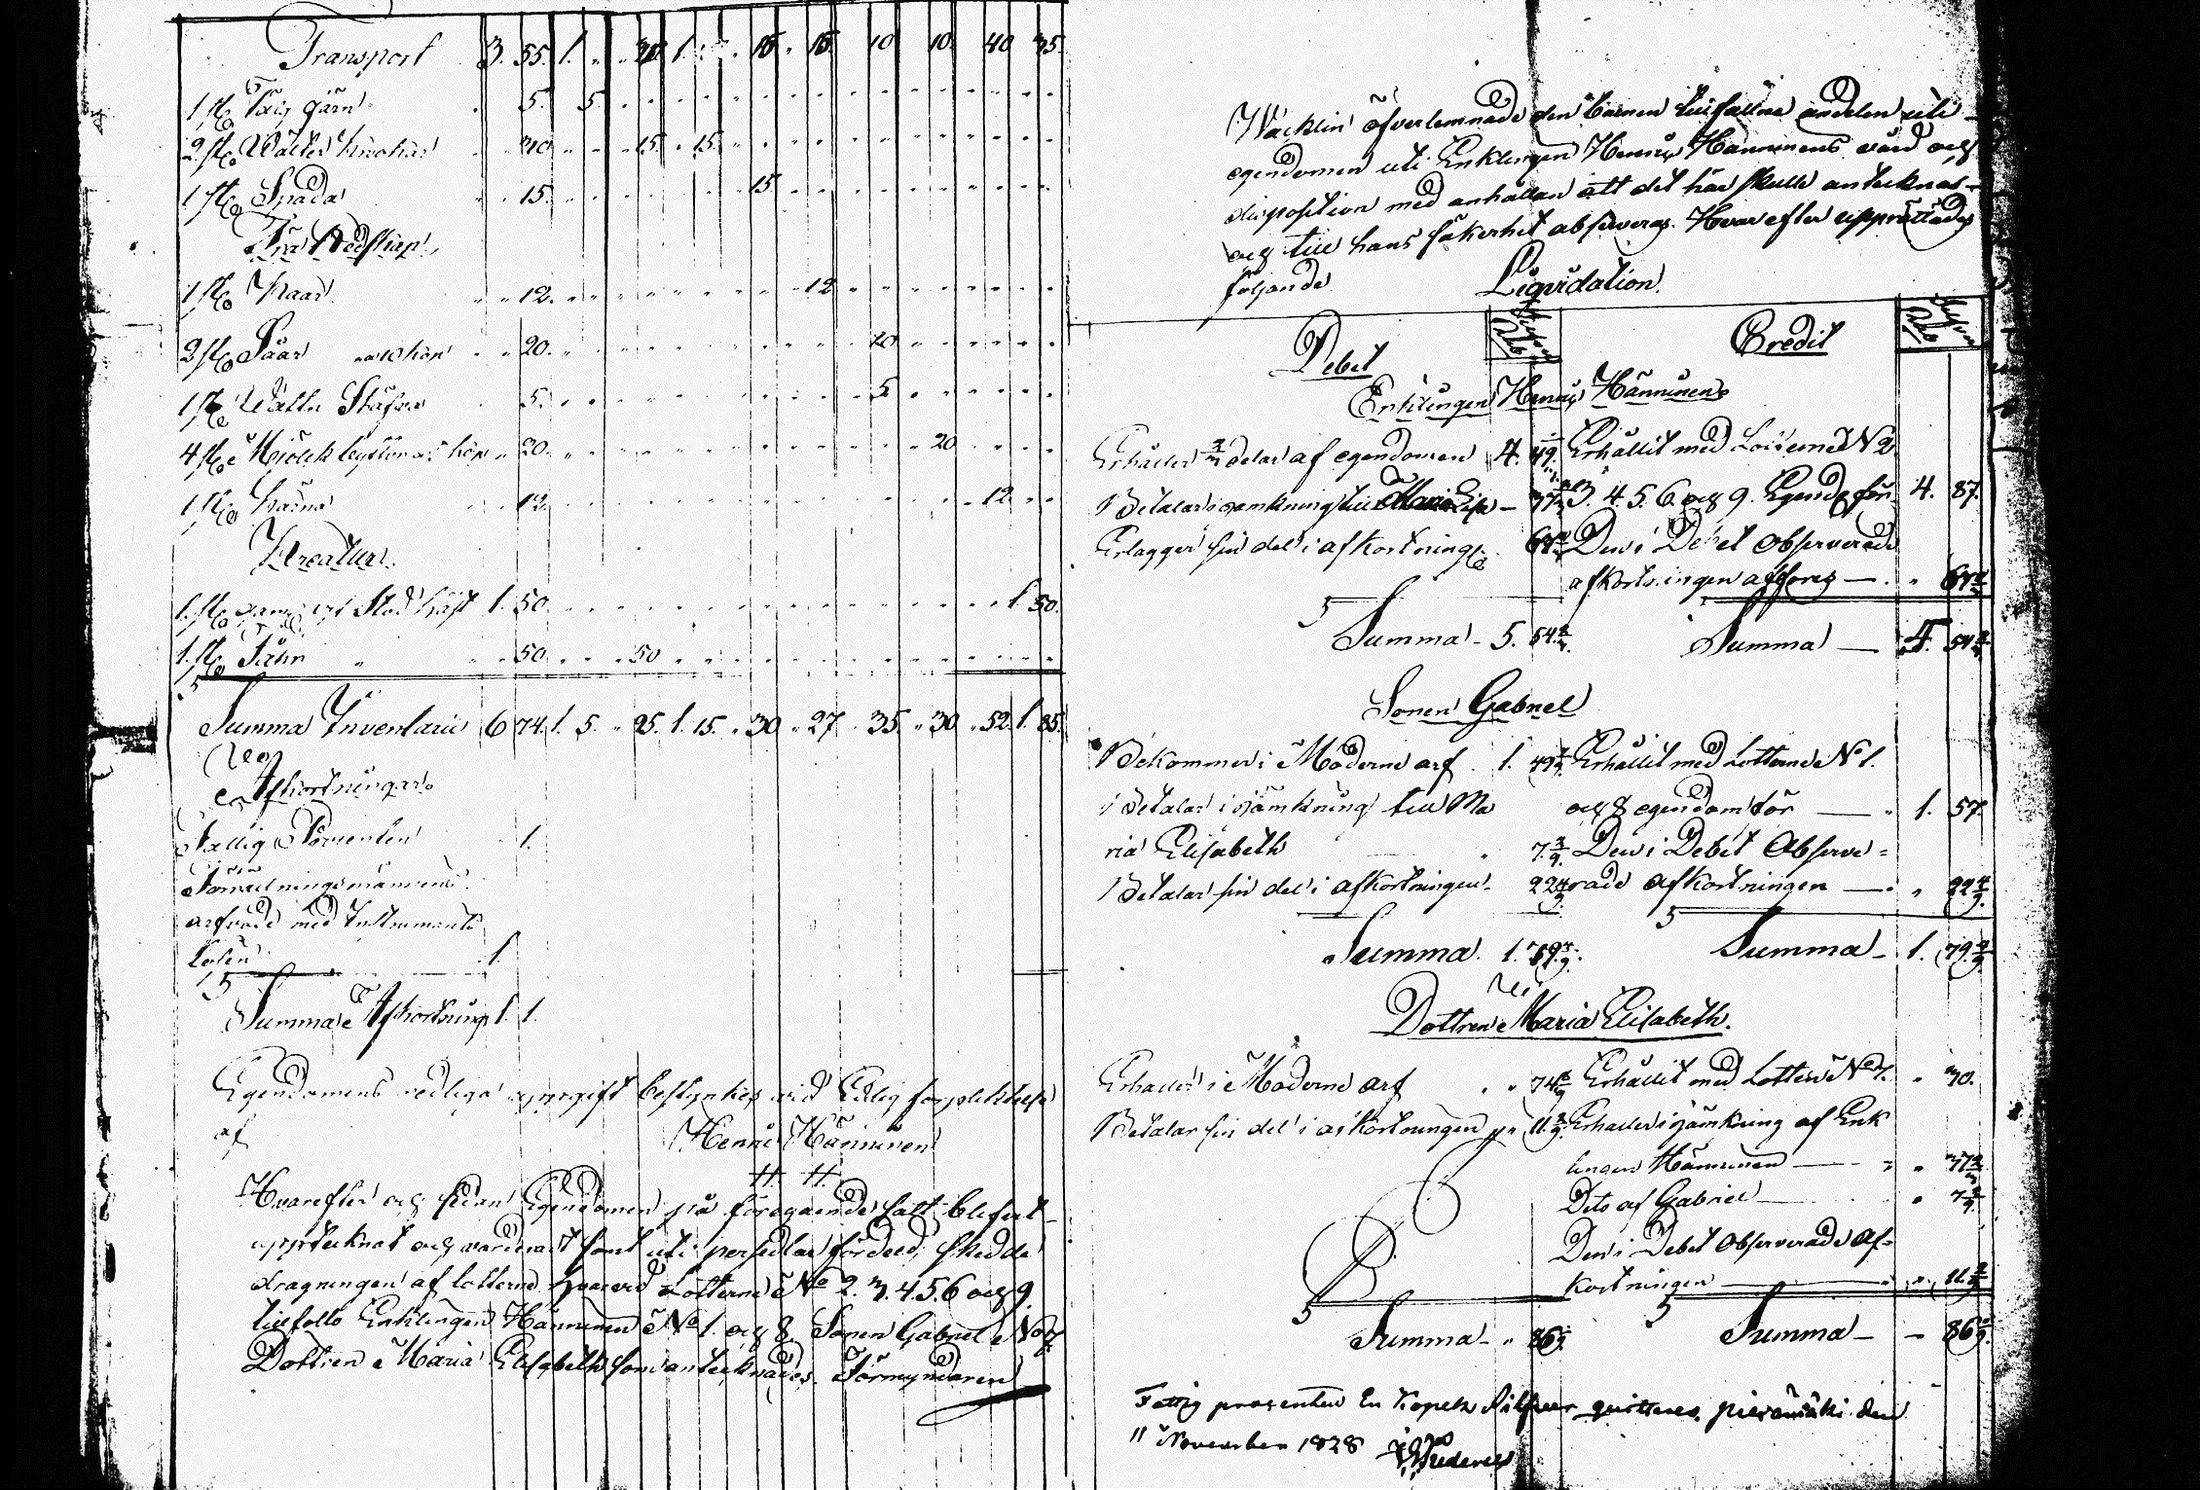 Transport 3. 55. 1. " " 30 1. " " 15 " 15 10 10. 40 35.
1 st Talg Järn " 5. 5
2 st " 30 15. 15.
1 st Spada " 15. 15
Trä Redskap
1 st Kaar " 12. 12
2 st Såar " 20. 20
1 st " 5. 5
4 st Mjölk " 20. 20
1 st Kärna 12. 12
Kreatur
1 st Stod häst 1. 50. 1. 50.
1 st 50 50
Summa Inventarii 6 74. 1. 5. " 95. 1. 15. " 30 " 27 " 35. " 30 " 52. 1. 85.
Afkortningar
Fattig Procenten 1.
Förrättningsmannens
arfvode med Instruments
lösen 1.
Summa Afkortning 1. 1.
Egendomens redliga uppgift bestyrkes vid Edlig förpliktelse
af Henric Hänninen
H. H.
Hvarefter och sedan Egendomen på föregående sätt blifvit
upptecknat och värderat samt uti persedlar fördeld, skedde
dragningen af lotterne hvarvid Lotterne No 2. 3. 4. 5. 6 och 9
tillföllo Enklingen Hänninen No 1. och 8. Sonen Gabriel No 7
Dottren Maria Elisabeth som antecknades. Förmyndaren
Wäcklin öfverlemnade den barnen tillfallne andelen uti
egendomen uti Enklingen Henric Hänninens vård och
disposition med anhållan att det här skulle antecknas
och till hans säkerhet observeras. Hvarefter upprättades
följande Liqvidation.
Debet Credit
Enklingen Henric Hänninen
Erhåller 2/3 delar af egendomen 4. 49. Erhållit med Lotterne No 2
Betalar i jämkning till Maria Elis. 37 3. 4. 5. 6. och 9. Egend. för 4. 87.
Erlägger sin del i afkortning 67 Den i Debet Observerade
afkortningen afföres — " 67
Summa 5. 54 Summa — 5. 54
Sonen Gabriel
Bekommer i Möderne arf 1. 49 Erhållit med Lotterne No 1.
Betalar i jämkning till Ma och 8 egendom för — 1. 57.
ria Elisabeth 7 Den i Debet Observe=
Betalar sin del i afkortningen 22 4/9 rade afkortningen — " 22 4/9
Summa 1. 79 Summa — 1. 79
Dottren Maria Elisabeth.
Erhåller i Möderne arf " " 74 Erhållit med Lotten No 7. " 30.
Betalar sin del i afkortningen 11 2/9 Erhåller i jämkning af Enk
lingen Hänninen — " 37
Dito af Gabriel — " 7
Den i Debet Observerade Af=
kortningen — " 11 2/9
Summa — " 86 Summa — — 86
Fattig procenten En Kopek Silfver quitteras, Pieksämäki den
11 November 1828